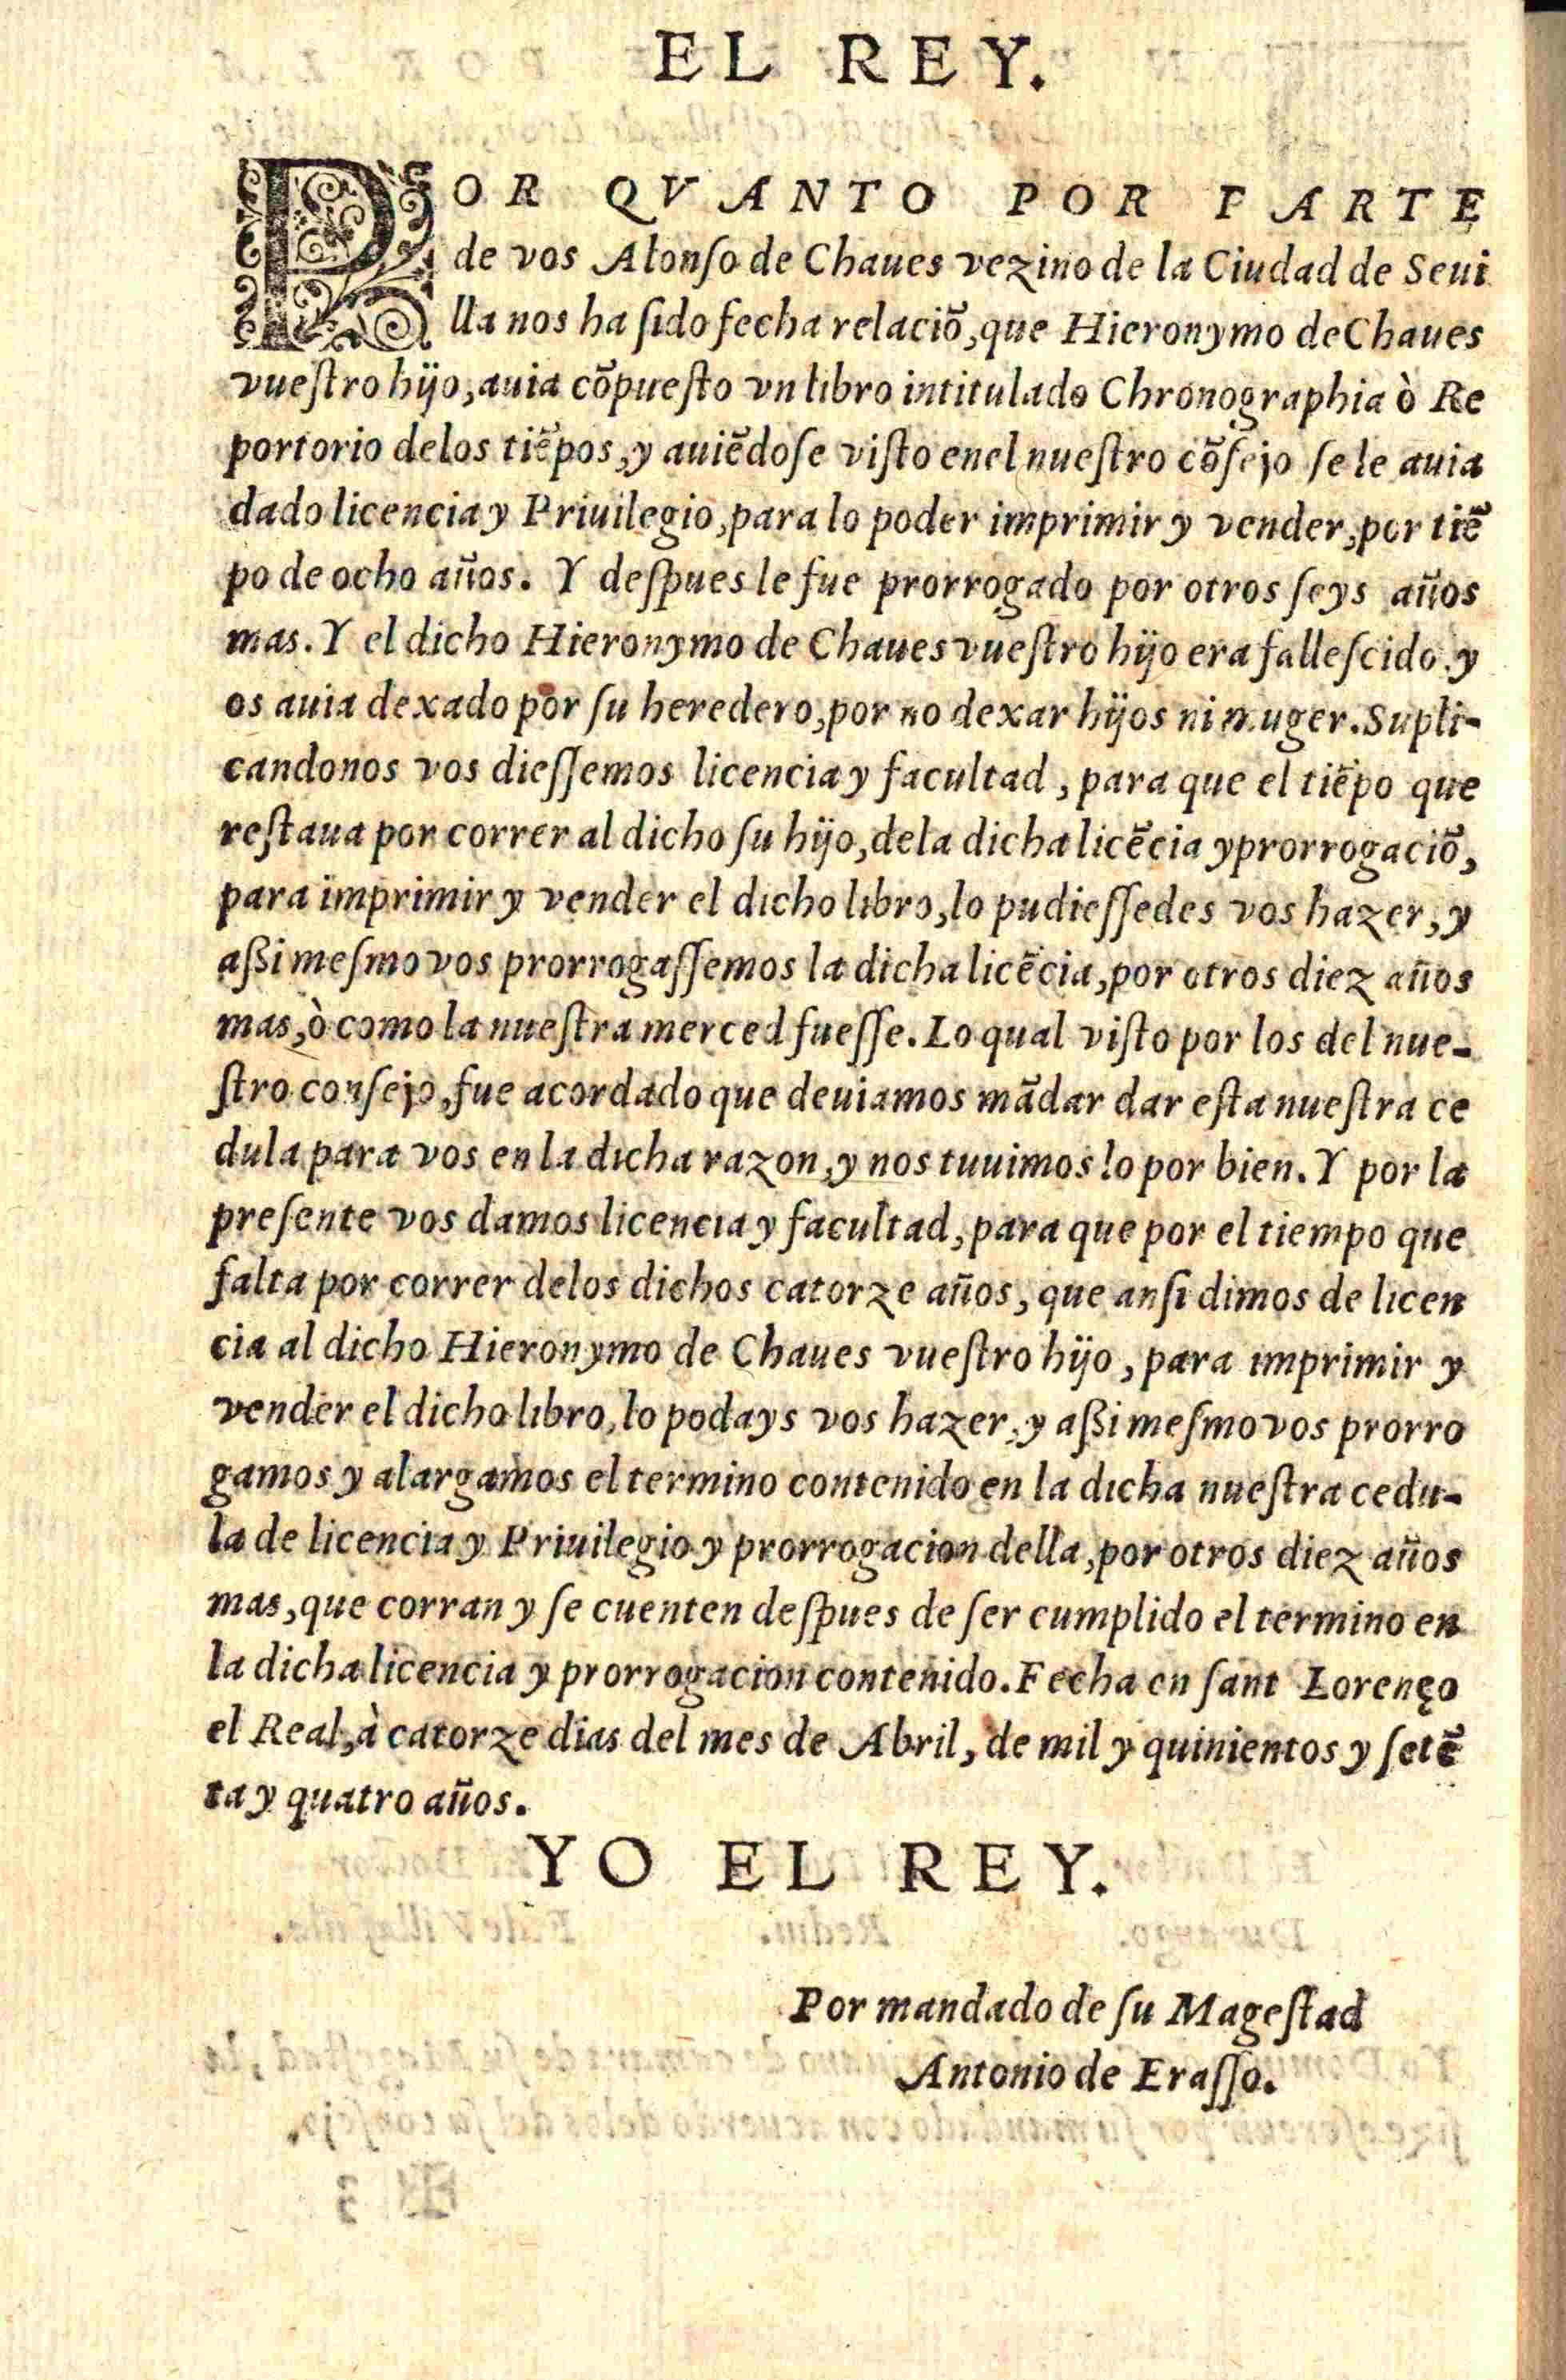 EL REY.
POR QVANTO POR PARTE
de vos Alonſo de Chaues vezino de la Ciudad de Seui
lla nos ha ſido fecha relaciõ, que Hieronymo de Chaues
vueſtro hijo, auia cõpueſto vn libro intitulado Chronographia ò Re
portorio delos tiẽpos, y auiẽdoſe viſto enel nueſtro cõſejo ſe le auia
dado licencia y Priuilegio, para lo poder imprimir y vender, por tiẽ
po de ocho años. Y deſpues le fue prorrogado por otros ſeys años
mas. Y el dicho Hieronymo de Chaues vueſtro hijo era falleſcido. y
os auia dexado por ſu heredero, por no dexar hijos ni muger. Supli-
candonos vos dieſſemos licencia y facultad, para que el tiẽpo que
reſtaua por correr al dicho ſu hijo, dela dicha licẽcia y prorrogaciõ,
para imprimir y vender el dicho libro, lo pudieſſedes vos hazer, y
aßi meſmo vos prorrogaſſemos la dicha licẽcia, por otros diez años
mas, ò como la nueſtra merced fueſſe. Lo qual viſto por los del nue-
ſtro conſejo, fue acordado que deuiamos mãdar dar eſta nueſtra ce
dula para vos en la dicha razon, y nos tuuimos lo por bien. Y por la
preſente vos damos licencia y facultad, para que por el tiempo que
falta por correr delos dichos catorze años, que anſi dimos de licen
cia al dicho Hieronymo de Chaues vueſtro hijo, para imprimir y
vender el dicho libro, lo podays vos hazer, y aßi meſmo vos prorro
gamos y alargamos el termino contenido en la dicha nueſtra cedu-
la de licencia y Priuilegio y prorrogacion della, por otros diez años
mas, que corran y ſe cuenten deſpues de ſer cumplido el termino en
la dicha licencia y prorrogacion contenido. Fecha en ſant Lorenço
el Real, à catorze dias del mes de Abril, de mil y quinientos y ſetẽ
ta y quatro años.
YO EL REY.
Por mandado de ſu Mageſtad
Antonio de Eraſſo.